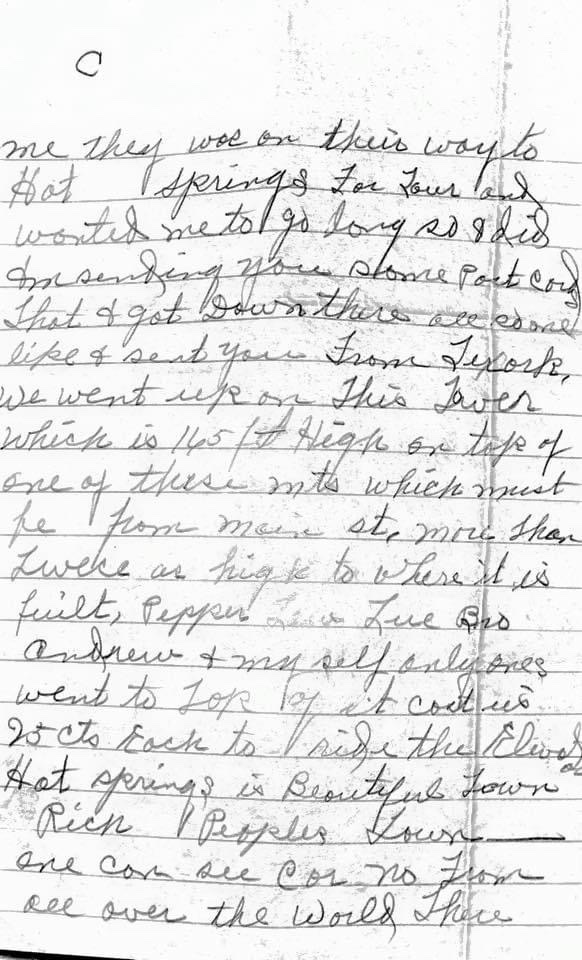 C
me they was on their way to
Hot Springs For Tour and
wanted me to go long so I did
Im sending you some Post Cards
That I got Down there all some
like I sent you From Texark,
we went up on This Tower
which is 165 ft High on top of
one of these mts which must
be from main st, more than
Twice as high to where it is
built, Pepper Lue Bro
Andrew & my self only ones
went to Top of it cost us
25 cts Each to ride the Elevator
Hot Springs is Beautiful Town
Rich Peoples Town
one can see Car no From
all over the World There